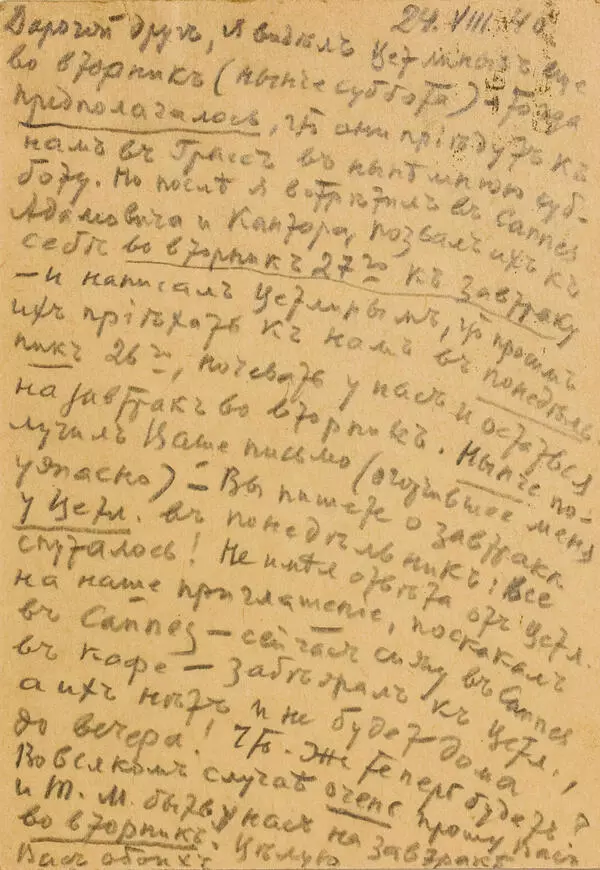 24. VIII. 40
Дорогой другъ, я видѣлъ Цетлиныхъ еще
во вторникъ (нынче суббота) – тогда
предполагалось, что они пріѣдутъ къ
намъ въ Грассъ въ нынѣшнюю суб-
боту. Но послѣ я встрѣтилъ въ Cannes
Адамовича и Кантора, позвалъ ихъ къ
себѣ во вторникъ 27го къ завтраку
– и написалъ Цетлинымъ, что просимъ
ихъ пріѣхать къ намъ въ понедѣль-
никъ 26го, ночевать у насъ и остаться
на завтракъ во вторникъ. Нынче по-
лучилъ Ваше письмо (огорчившее меня
ужасно) – Вы пишете о завтракѣ
у Цетл. въ понедѣльникъ! Все
спуталось! Не имѣя отвѣта отъ Цетл.
на наше приглашеніе, поскакалъ
въ Cannes – сейчасъ сижу въ Cannes
въ кафе – забѣжалъ къ Цетл.,
а ихъ нѣтъ и не будетъ дома
до вечера! Что-же теперь будетъ?
Во всякомъ случаѣ очень прошу Васъ
и Т. М. быть у насъ на завтракѣ
во вторникъ. Цѣлую
Васъ обоихъ